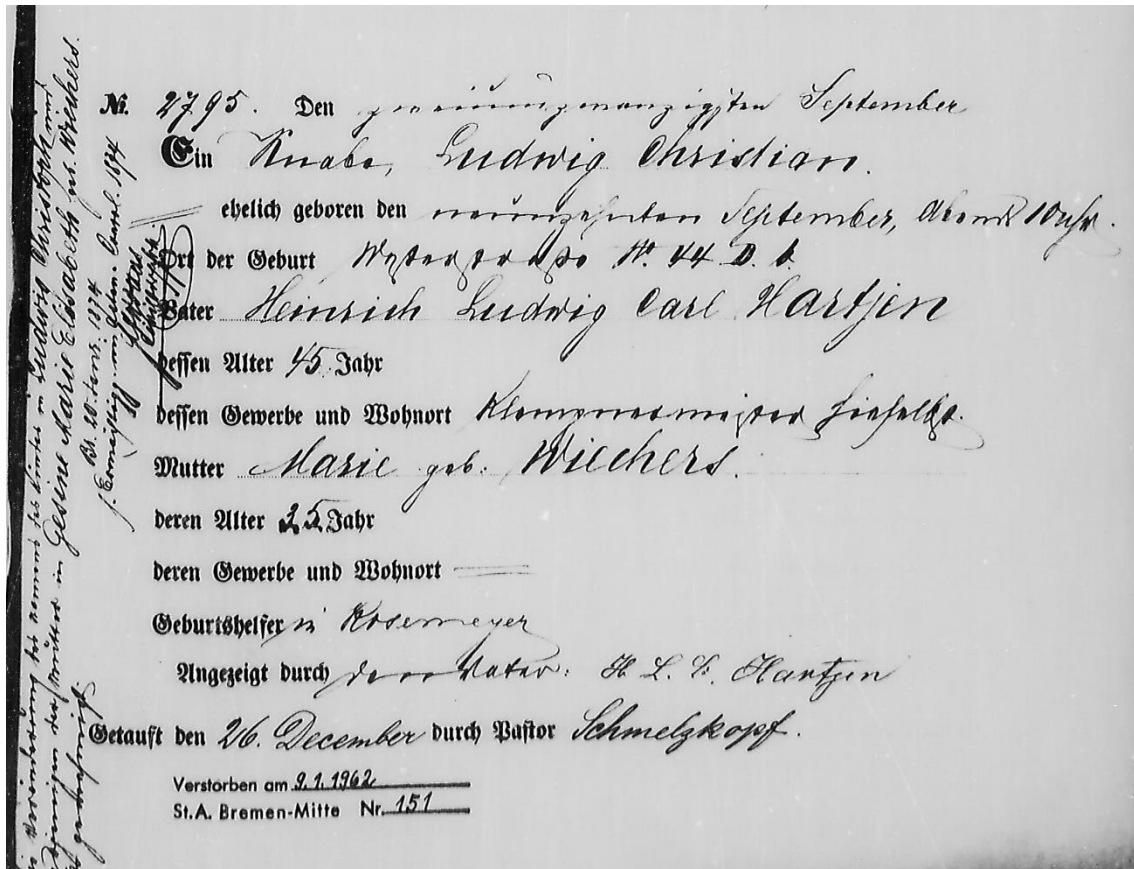 No. 2795. Den zweiundzwanzigsten September
Ein Knabe, Ludwig Christian.
ehelich geboren den neunzehnten September, Abends 10 Uhr.
Ort der Geburt No. 44
Vater Heinrich Ludwig Carl Hartjen
dessen Alter 45 Jahr
dessen Gewerbe und Wohnort Klempnermeister hieselbst.
Mutter Marie geb. Wiechers.
deren Alter 35 Jahr
deren Gewerbe und Wohnort
Geburtshelfer in Rosemeyer
Angezeigt durch den Vater: H. L. C. Hartjen
Getauft den 26. December durch Pastor Schmelzkopf.
Verstorben am 9.1.1962
St.A. Bremen-Mitte Nr. 151
Veränderung des Namens des Kindes in Ludwig Christoph und
desjenigen der Mutter in Gesine Marie Elisabeth geb. Wiechers.
genehmigt.
Br. 20. 1874